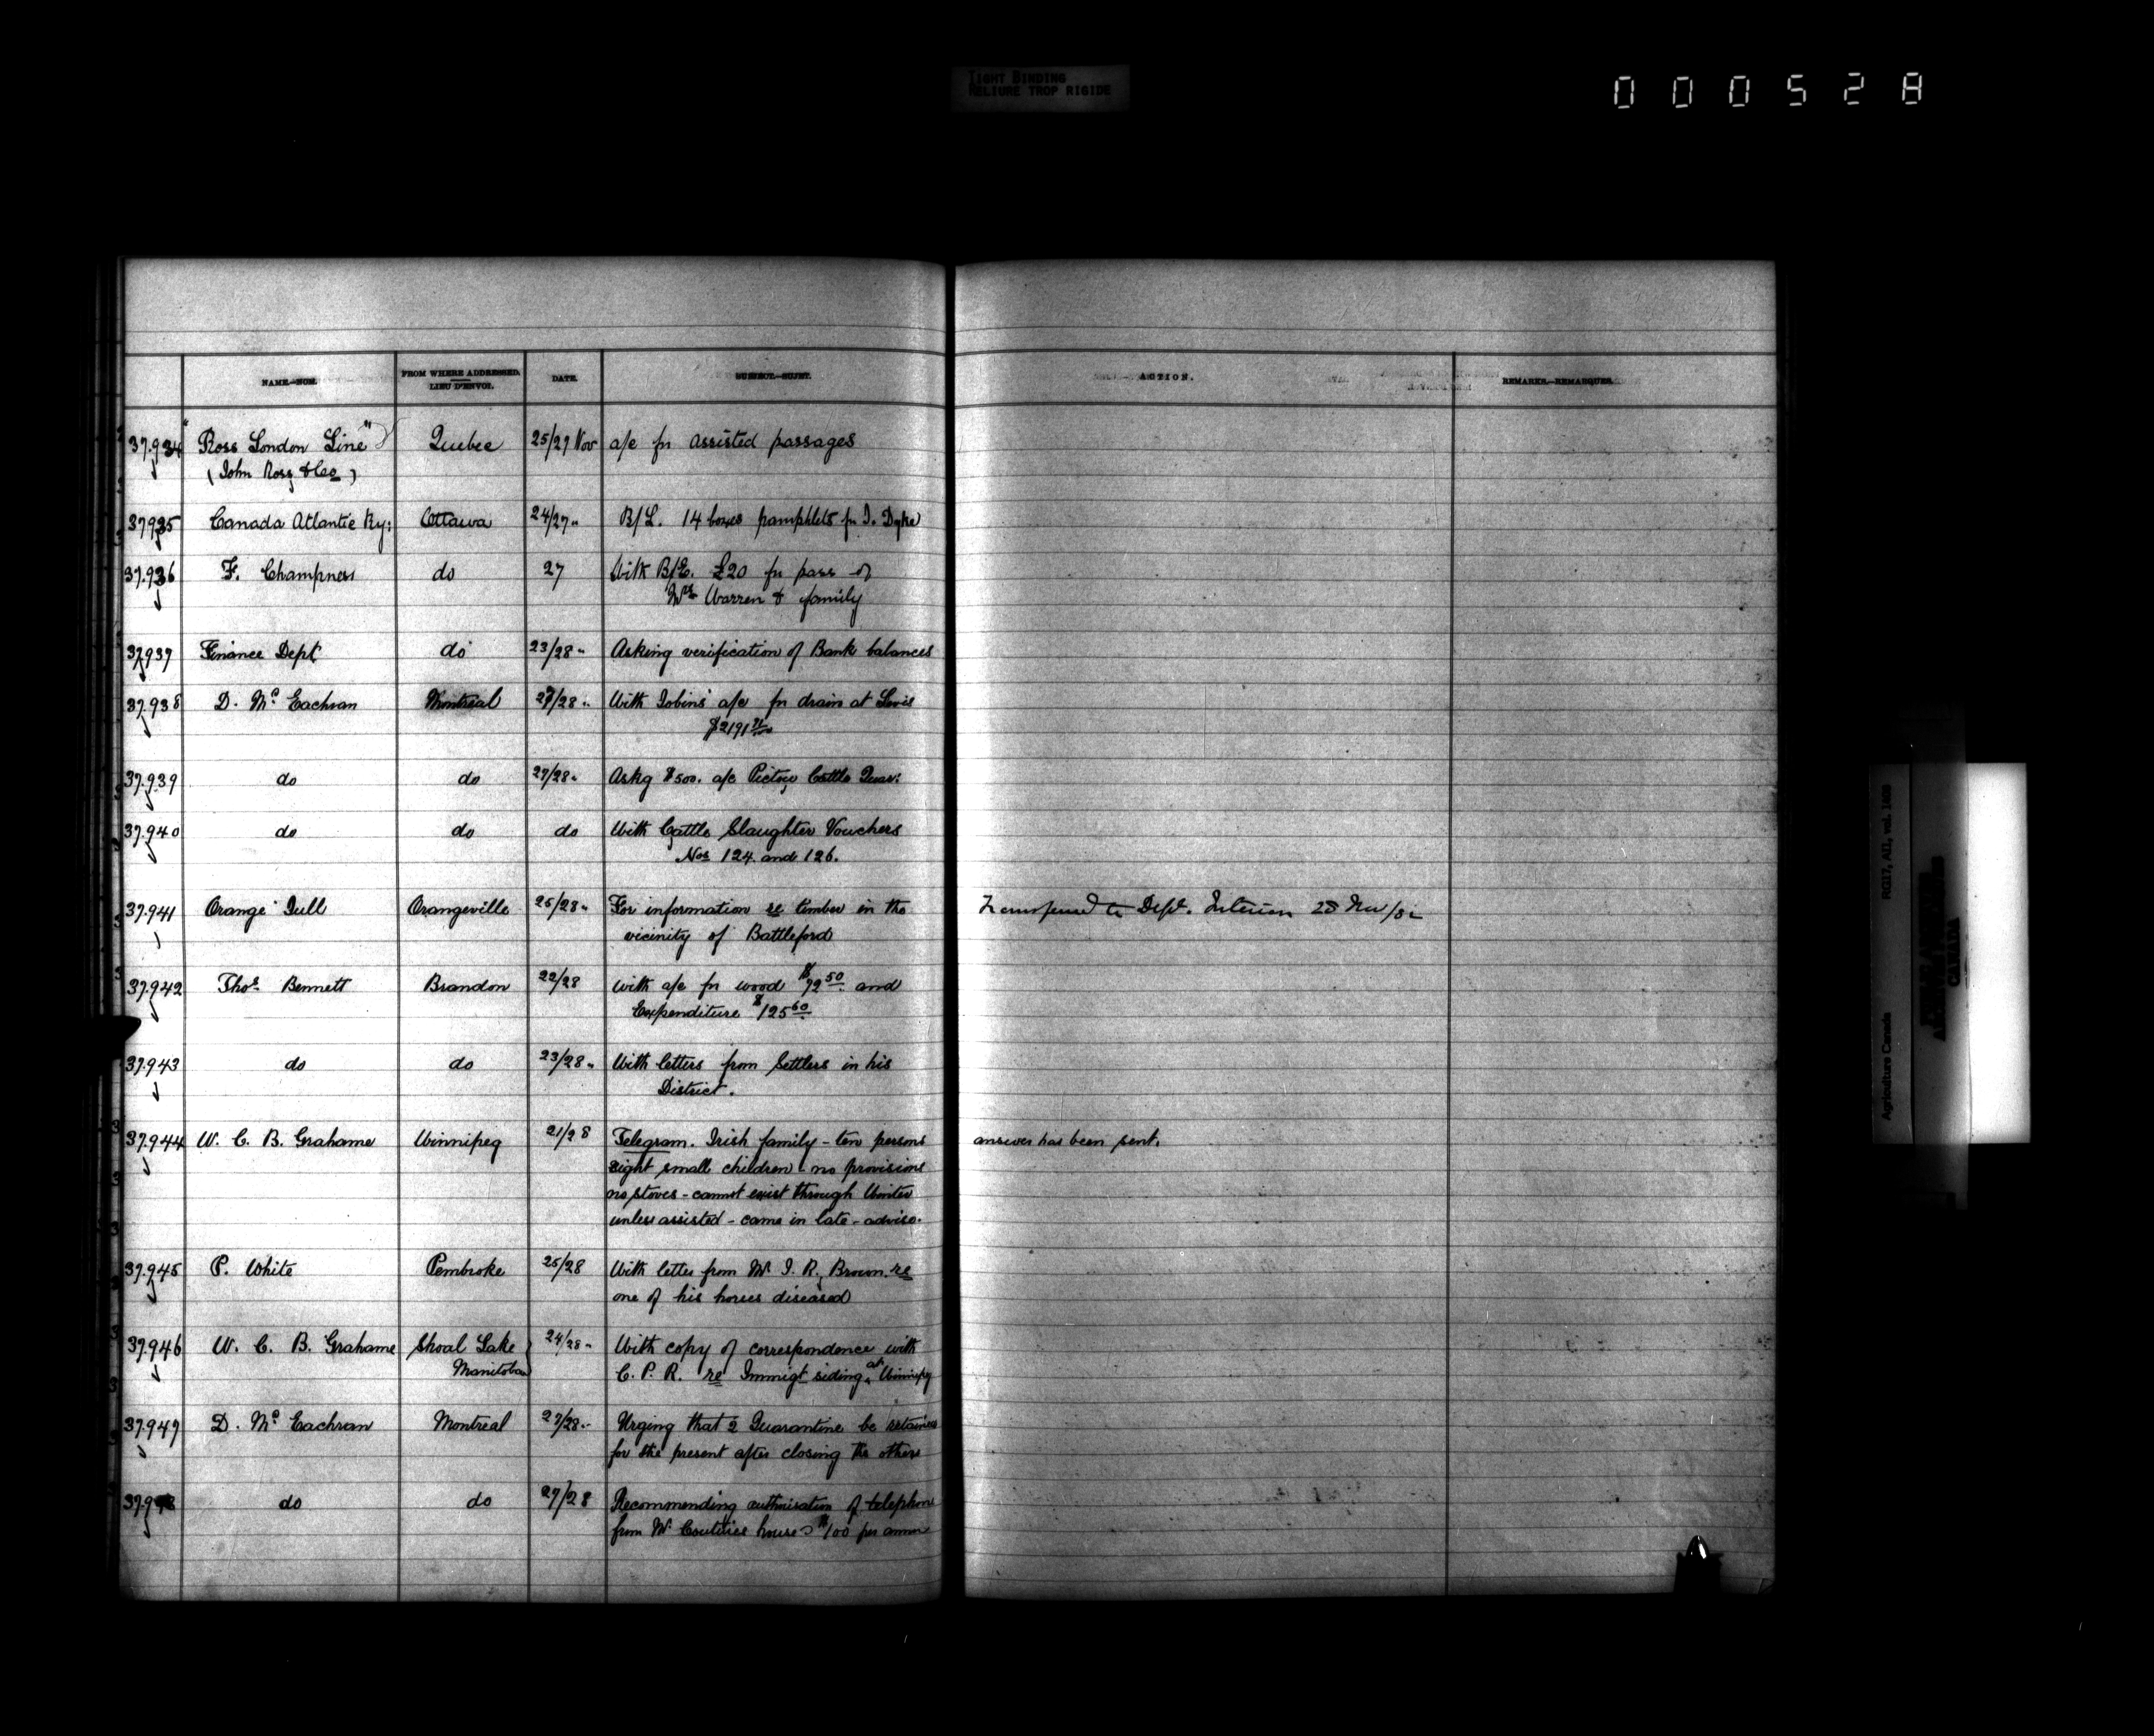 TIGHT BINDING
RELIURE TROP RIGIDE
000528
NAME.—NOM.
FROM WHERE ADDRESSED.
LIEU D'ENVOI.
DATE.
SUBJECT.—SUJET.
ACTION.
REMARKS.—REMARQUES.
37.934 "Ross London Line" Quebec 25/27 Nov a/c for assisted passages
(John Ross & Co)
37935 Canada Atlantic Ry: Ottawa 24/27 " B/L. 14 boxes pamphlets for J. Dyke
37.936 F. Champness do 27 With B/E. £20 for pass of
Mrs Warren & family
37937 Finance Dept do 23/28 " Asking verification of Bank balances
37.938 D. Mc Eachran Montreal 27/28 " With Jobins' a/c for drain at Levis
$2191
37.939 do do 27/28 " Askg $500. a/c Pictou Cattle Quar:
37.940 do do do With Cattle Slaughter Vouchers
Nos 124 and 126.
37.941 Orange Jull Orangeville 25/28 " For information re timber in the Transferred to Dept. Interior 28 Nov/82
vicinity of Battleford
37.942 Thos. Bennett Brandon 22/28 with a/c for wood $72.50 and
Expenditure $125.60
37.943 do do 23/28 " With letters from Settlers in his
District.
37.944 W. C. B. Grahame Winnipeg 21/28 Telegram. Irish family - ten persons answer has been sent.
eight small children - no provisions
no stoves - cannot exist through Winter
unless assisted - came in late - advise.
37.945 P. White Pembroke 25/28 With letter from Mr J. R. Brown re
one of his horses diseased
37.946 W. C. B. Grahame Shoal Lake 24/28 " With copy of correspondence with
Manitoba C. P. R. re Immigt siding at Winnipeg
37.947 D. Mc Eachran Montreal 27/28 " Urging that 2 Quarantine be retained
for the present after closing the others
37.948 do do 27/28 Recommending authorisation of telephone
from Mr Coutures house $100 per annum
Agriculture Canada RG17, AII, vol. 1490
CANADA